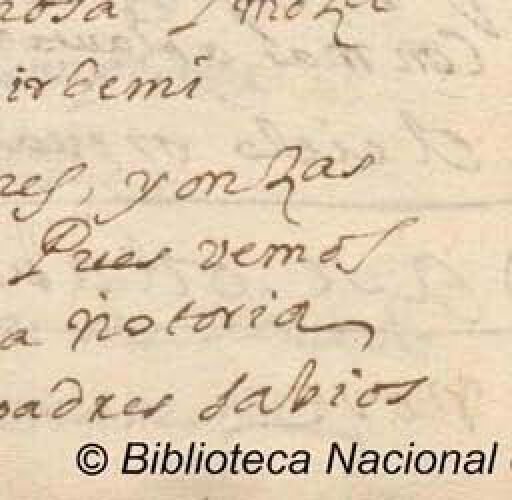 irbemi
res, y onRas
Pues vemos
a notoria
padres sabios
© Biblioteca Nacional